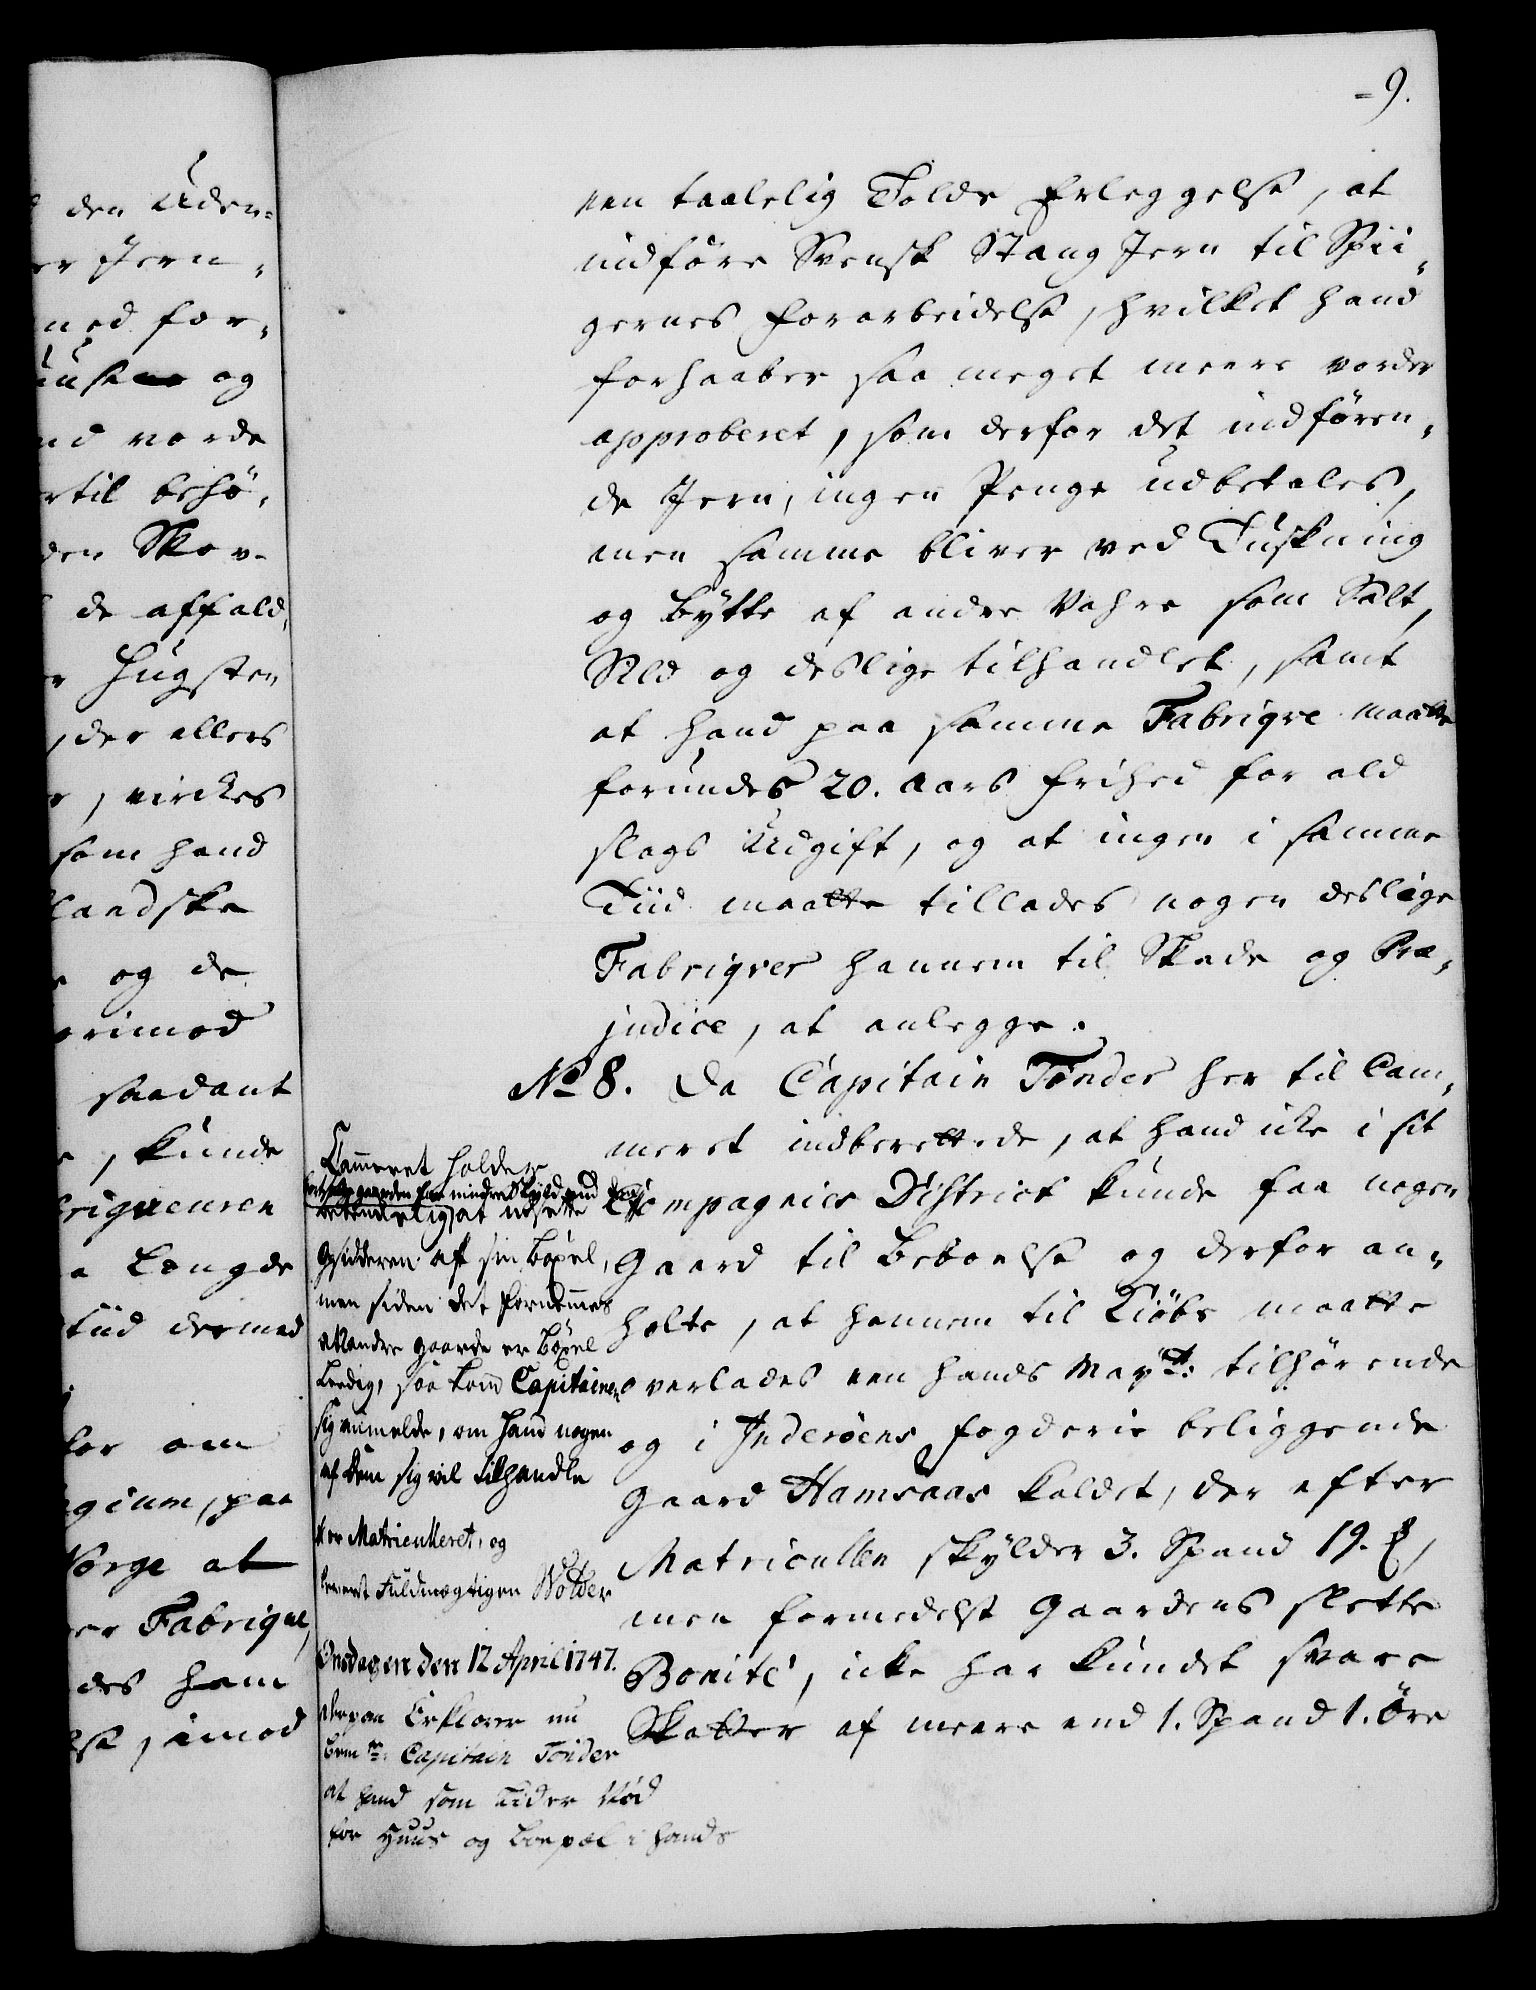 9.
een taalelig Tolds Erleggelse, at
indføre Svensk Stang Jern til Spii-
gernes forarbeidelse, hvilket hand
forhaaber saa meget meere vorder
approberet, som derfor det indføren-
de Jern, ingen Penge udbetales,
men samme bliver ved Tuskning
og Bytte af andre Vahre som Salt,
Sild og deslige tilhandlet, samt
at hand paa samme Fabriqve maatte
forundes 20. Aars frihed for ald
slags Udgift, og at ingen i samme
Tiid maatte tillades nogen deslige
Fabriqver hannem til Skade og Præ-
judice, at anlegge.
No 8. Da Capitain Tønder her til Cam-
meret indberettede, at hand icke i sit
Compagnies District kunde faa nogen
Gaard til Beboelse og derfor an-
holte, at hannem til Kiøbs maatte
overlades een hands Mayts: tilhørende
og i Inderøens fogderie beliggende
Gaard Hamsaas kaldet, der efter
Matricullen skylder 3. Spand 19.
men formedelst Gaardens slette
Bonité, icke har kundet svare
Skatter af meere end 1. Spand 1. Øre
Cammeret holder
gaarden for mindre Skyld end
at udsette
Opsidderen aff sin Bøxel,
men siden det fornemmes
at andre gaarde er Bøxel
Leedig, saa kand Capitainen
sig anmelde, om hand nogen
af dem sig vil tilhandle
er Matriculleret, og
leveret Fuldmægtigen Wølder
Onsdagen den 12 April 1747.
Derpaa Erklærer nu
bemte: Capitain Tønder
at hand som lider Nød
for Huus og i hands
den Uden-
er Jern-
med for-
og
vorde
rtil behø-
den Skov-
de affald,
Hugsten
, der ellers
, virckes
som hand
landske
og de
erimod
saadant
, kunde
briqveuren
Længde
tiid dermed
for om
gium, paa
Norge at
er Fabrique,
des ham
lse, imod